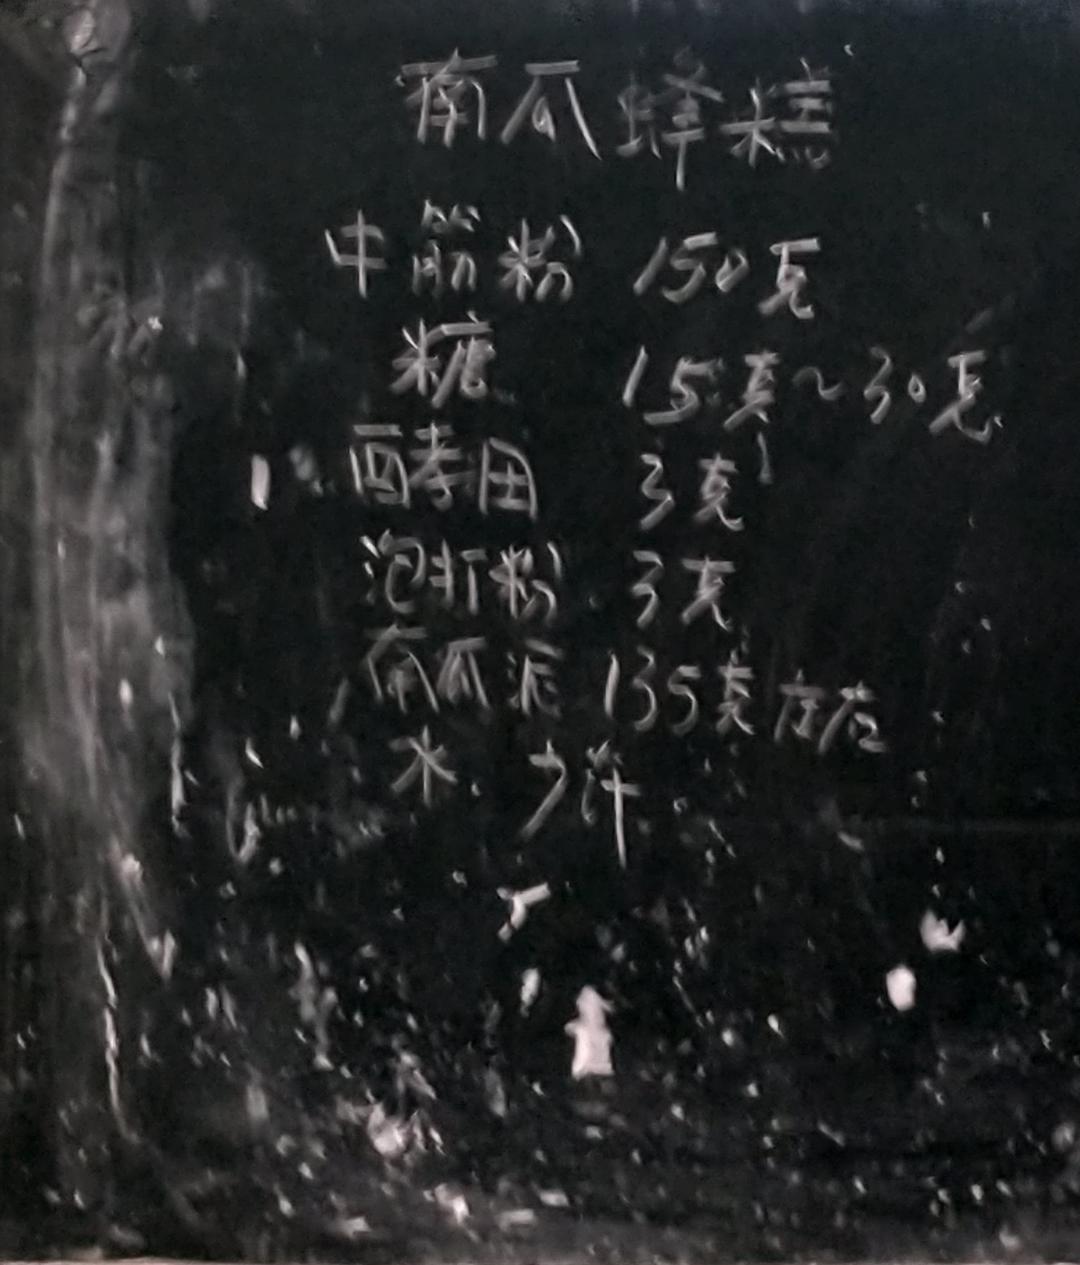 南瓜蜂糕
中筋粉 150克
糖 15克~30克
酵母 3克
泡打粉 3克
南瓜泥 135克左右
水 少许